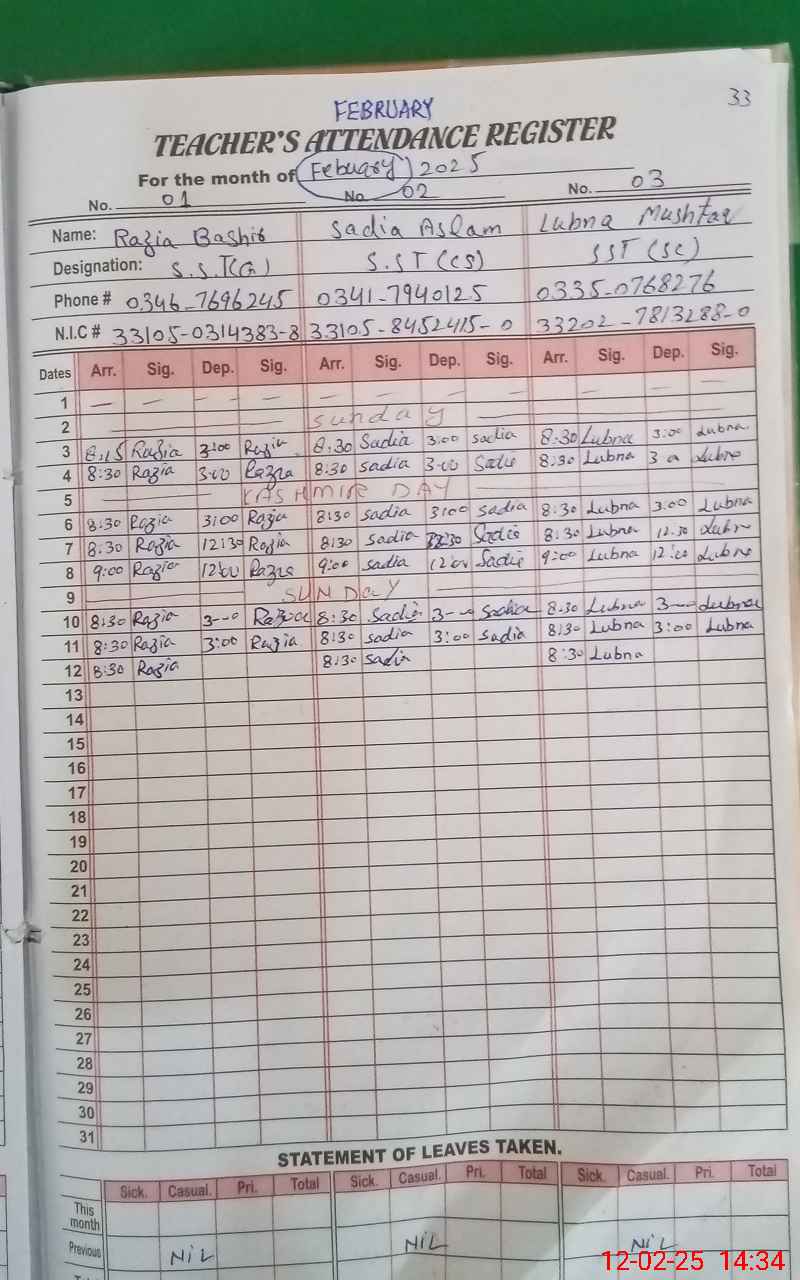 33
FEBRUARY
TEACHER'S ATTENDANCE REGISTER
For the month of Febuary 2025
No. 01 No 02 No. 03
Name: Razia Bashir Sadia Aslam Lubna Mushtaq
Designation: S.S.T(G) S.ST (CS) SST (SC)
Phone # 0346-7696245 0341-7940125 0335-0768276
N.I.C # 33105-0314383-8 33105-8452415-0 33202-7813288-0
Dates Arr. Sig. Dep. Sig. Arr. Sig. Dep. Sig. Arr. Sig. Dep. Sig.
1 — — — — — — — — — — — —
2 Sunday
3 8:15 Razia 3:00 Razia 8:30 Sadia 3:00 sadia 8:30 Lubna 3:00 Lubna
4 8:30 Razia 3:00 Razia 8:30 sadia 3:00 Sadia 8:30 Lubna 3 Lubna
5 KASHMIR DAY
6 8:30 Razia 3:00 Razia 8:30 sadia 3:00 sadia 8:30 Lubna 3:00 Lubna
7 8:30 Razia 12:30 Razia 8:30 sadia Sadia 8:30 Lubna 12.30 Lubna
8 9:00 Razia 12:00 Razia 9:00 sadia 12:00 Sadia 9:00 Lubna 12:00 Lubna
9 SUNDAY
10 8:30 Razia 3-- Razia 8:30 Sadia 3-- Sadia 8.30 Lubna 3-- Lubna
11 8:30 Razia 3:00 Razia 8:30 sadia 3:00 sadia 8:30 Lubna 3:00 Lubna
12 8:30 Razia 8:30 sadia 8:30 Lubna
13
14
15
16
17
18
19
20
21
22
23
24
25
26
27
28
29
30
31
STATEMENT OF LEAVES TAKEN.
Sick. Casual. Pri. Total Sick. Casual. Pri. Total Sick. Casual. Pri. Total
This month
Previous NiL NiL NiL
12-02-25 14:34